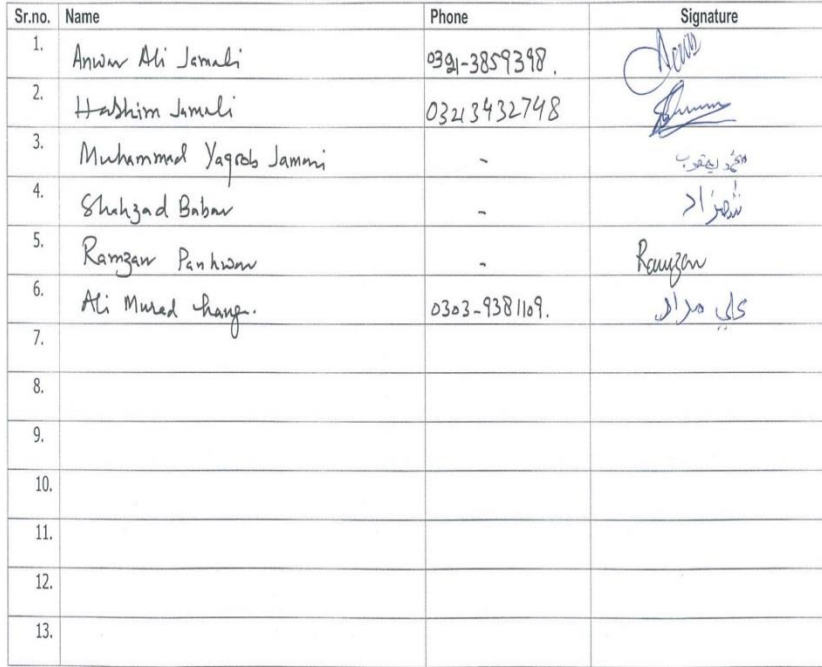 Sr.no. Name Phone Signature
1. Anwar Ali Jamali
2. Hashim Jamali 03213432748
3. Muhammad Yaqoob Jamani - محمد يعقوب
4. Shahzad Babar - شهزاد
5. Ramzan Panhwar - Ramzan
6. Ali Murad Chang. 0303-9381109. علي مراد
7.
8.
9.
10.
11.
12.
13.